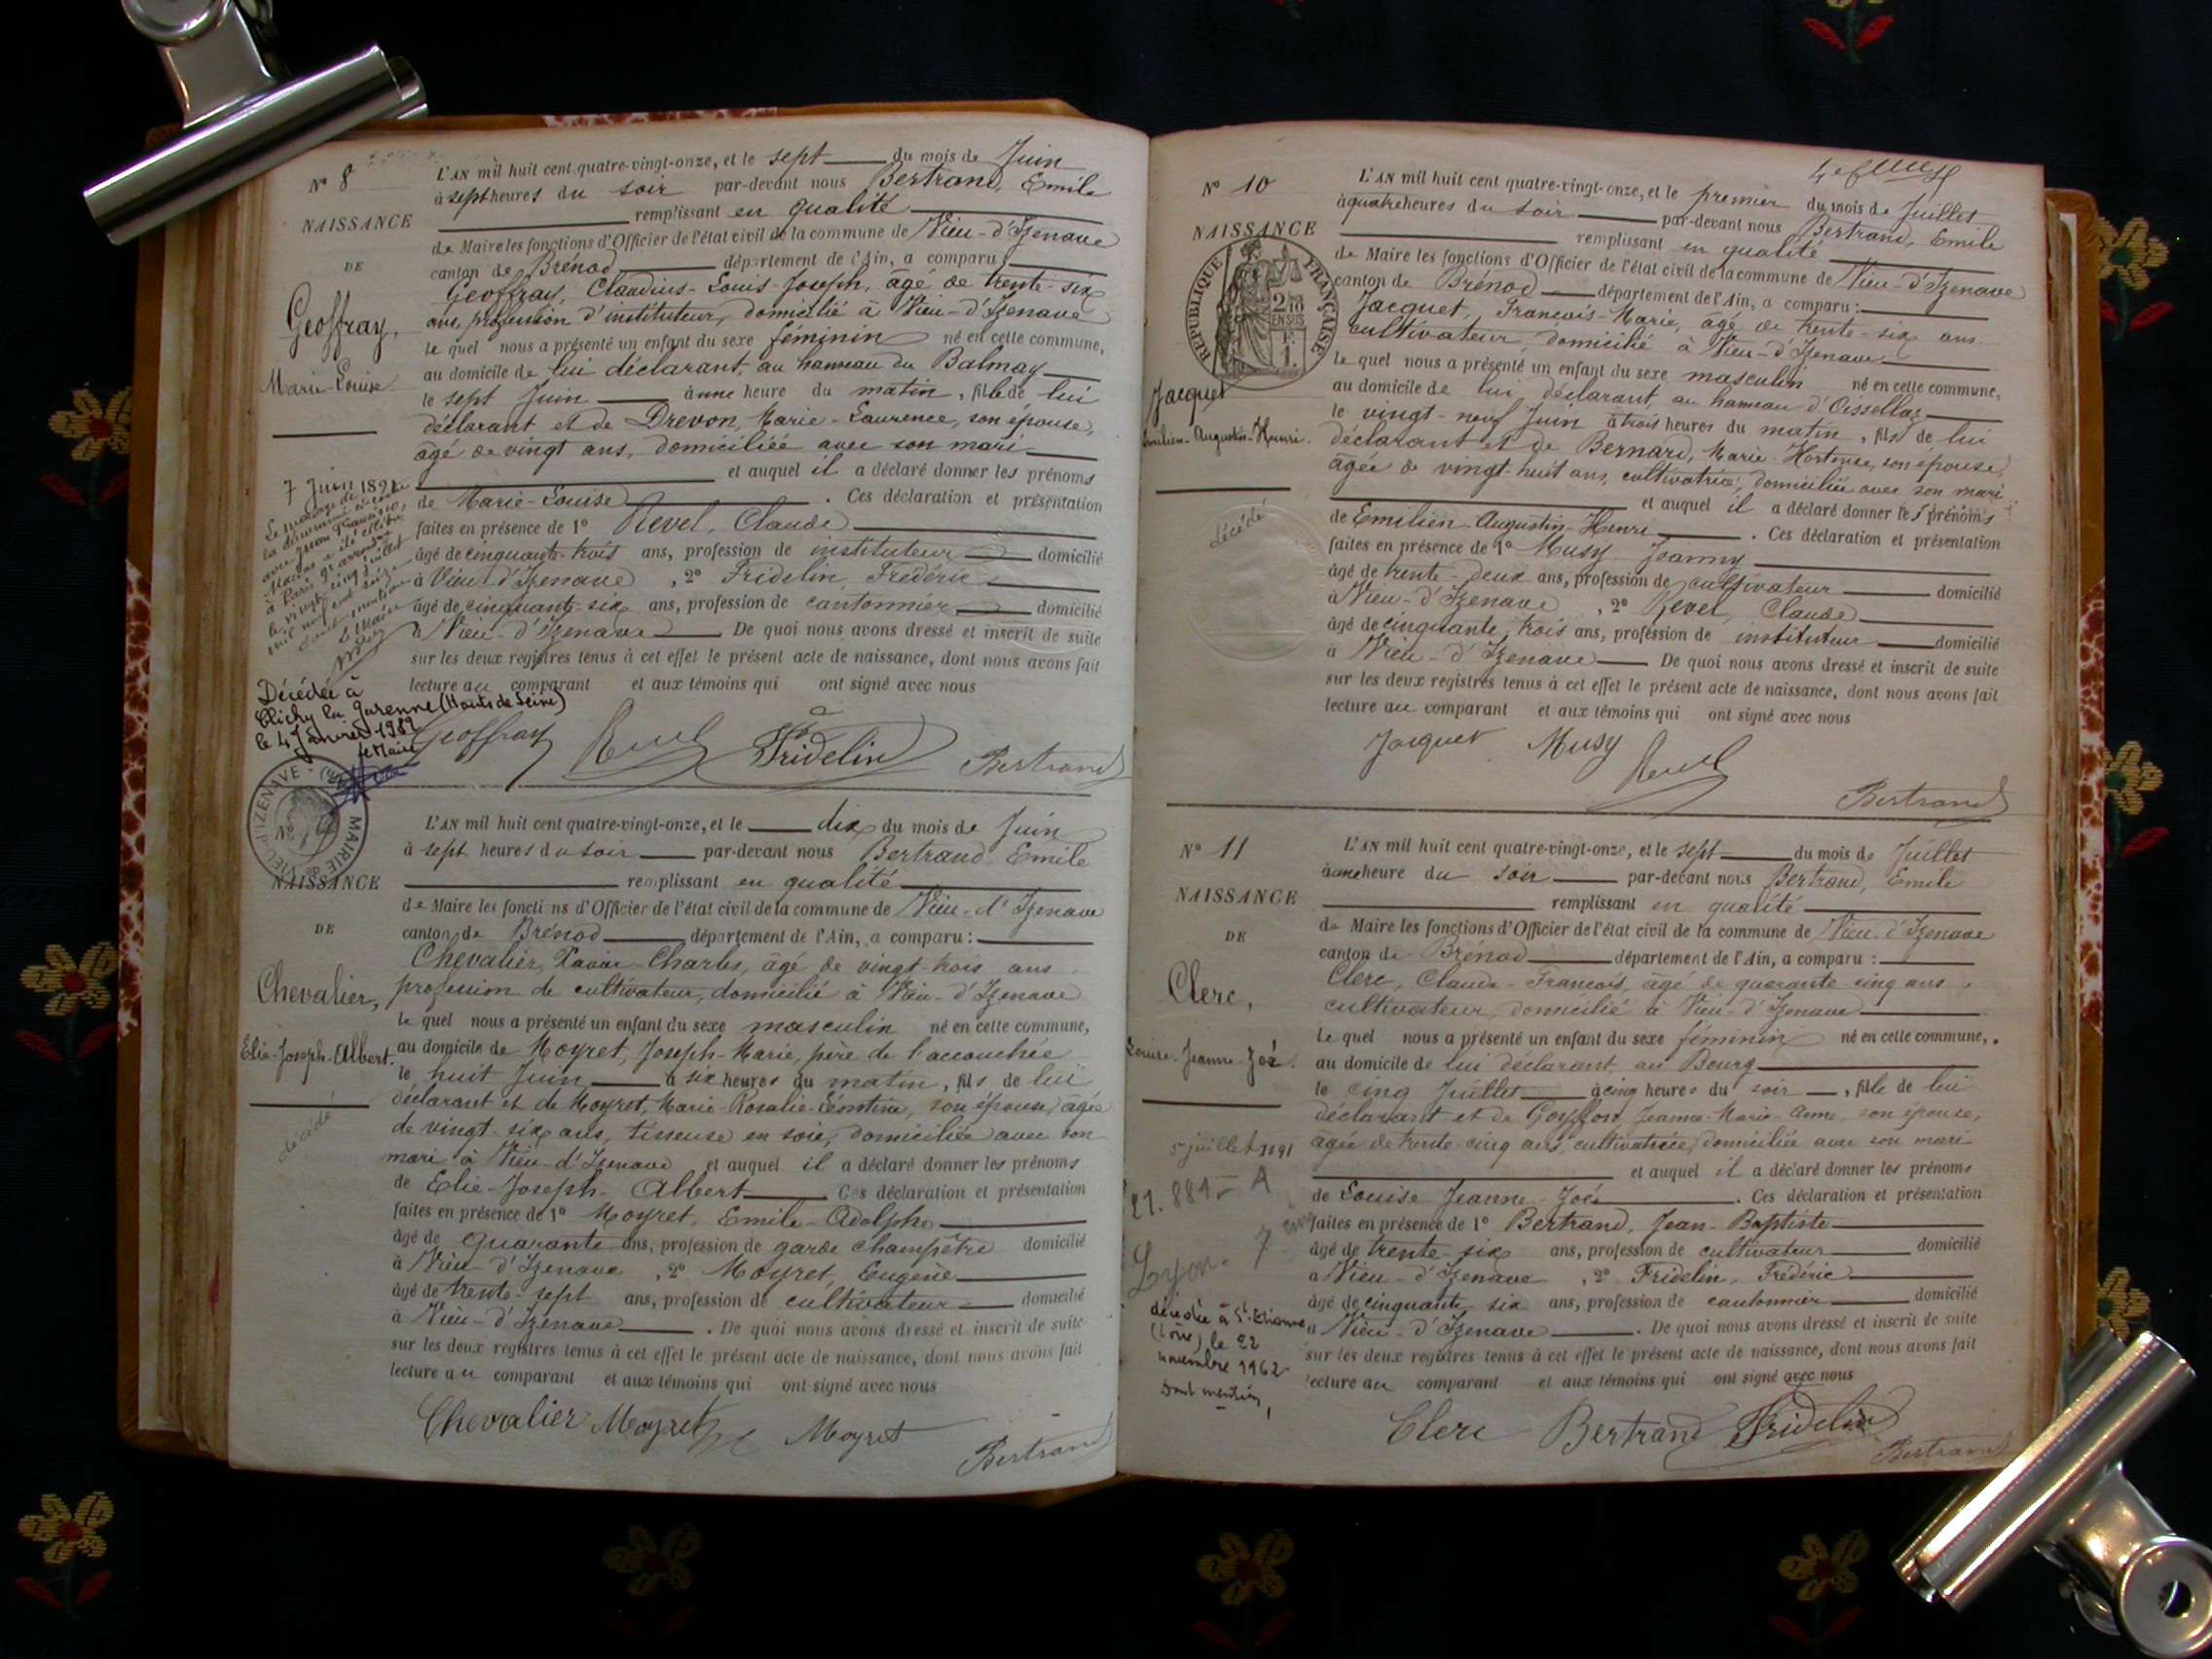 N° 8
NAISSANCE
DE
Geoffray,
Marie-Louise
L'AN mil huit cent quatre-vingt-onze, et le sept du mois de Juin
à sept heures du soir par-devant nous Bertrand, Emile
remplissant en qualité
de Maire les fonctions d'Officier de l'état civil de la commune de Vieu-d'Izenave
canton de Brénod département de l'Ain, a comparu
Geoffray, Claudius-Louis-Joseph, âgé de trente-six
ans, profession d'instituteur, domicilié à Vieu-d'Izenave
le quel nous a présenté un enfant du sexe féminin né en cette commune,
au domicile de lui déclarant, au hameau du Balmay
le sept Juin à une heure du matin, fille de lui
déclarant et de Drevon, Marie-Laurence, son épouse,
âgé de vingt ans, domiciliée avec son mari
et auquel il a déclaré donner les prénoms
de Marie-Louise. Ces déclaration et présentation
faites en présence de 1° Revel, Claude
âgé de cinquante-trois ans, profession de instituteur domicilié
à Vieu-d'Izenave, 2° Fridelin, Frédéric
âgé de cinquante-six ans, profession de cantonnier domicilié
à Vieu-d'Izenave De quoi nous avons dressé et inscrit de suite
sur les deux registres tenus à cet effet le présent acte de naissance, dont nous avons fait
lecture au comparant et aux témoins qui ont signé avec nous
Geoffray Revel Fridelin Bertrand
7 Juin 1891
Le mariage de
la dénommée ci-contre
avec
a été célébré
à Paris
le vingt cinq juillet
mil neuf cent seize
dont mention
Le Maire
Décédée à
Clichy la Garenne (Hauts de Seine)
le 4 Janvier 1982
le Maire
MAIRIE DE VIEU-D'IZENAVE
NAISSANCE
DE
Chevalier,
Elie-Joseph-Albert.
décédé
L'AN mil huit cent quatre-vingt-onze, et le dix du mois de Juin
à sept heures du soir par-devant nous Bertrand Emile
remplissant en qualité
de Maire les fonctions d'Officier de l'état civil de la commune de Vieu-d'Izenave
canton de Brénod département de l'Ain, a comparu :
Chevalier, Xavier Charles, âgé de vingt-trois ans
profession de cultivateur, domicilié à Vieu-d'Izenave
le quel nous a présenté un enfant du sexe masculin né en cette commune,
au domicile de Moyret, Joseph-Marie, père de l'accouchée
le huit Juin à six heures du matin, fils de lui
déclarant et de Moyret, Marie-Rosalie-Léontine, son épouse, âgée
de vingt-six ans, tisseuse en soie, domiciliée avec son
mari à Vieu-d'Izenave et auquel il a déclaré donner les prénoms
de Elie-Joseph-Albert Ces déclaration et présentation
faites en présence de 1° Moyret, Emile-Adolphe
âgé de quarante ans, profession de garde champêtre domicilié
à Vieu-d'Izenave, 2° Moyret, Eugène
âgé de trente-sept ans, profession de cultivateur domicilié
à Vieu-d'Izenave. De quoi nous avons dressé et inscrit de suite
sur les deux registres tenus à cet effet le présent acte de naissance, dont nous avons fait
lecture au comparant et aux témoins qui ont signé avec nous
Chevalier Moyret Moyret
Bertrand
N° 10
NAISSANCE
RÉPUBLIQUE FRANÇAISE
2/10 EN SUS
Jacquet
Emilien-Augustin-Henri.
décédé
L'AN mil huit cent quatre-vingt-onze, et le premier du mois de Juillet
à quatre heures du soir par-devant nous Bertrand, Emile
remplissant en qualité
de Maire les fonctions d'Officier de l'état civil de la commune de Vieu-d'Izenave
canton de Brénod département de l'Ain, a comparu :
Jacquet, François-Marie, âgé de trente-six ans
cultivateur, domicilié à Vieu-d'Izenave
le quel nous a présenté un enfant du sexe masculin né en cette commune,
au domicile de lui déclarant, au hameau d'Oissellaz
le vingt-neuf Juin à trois heures du matin, fils de lui
déclarant et de Bernard, Marie-Hortense, son épouse,
âgée de vingt-huit ans, cultivatrice, domiciliée avec son mari
et auquel il a déclaré donner les prénoms
de Emilien-Augustin-Henri. Ces déclaration et présentation
faites en présence de 1° Musy Joanny
âgé de trente-deux ans, profession de cultivateur domicilié
à Vieu-d'Izenave, 2° Revel, Claude
âgé de cinquante trois ans, profession de instituteur domicilié
à Vieu-d'Izenave De quoi nous avons dressé et inscrit de suite
sur les deux registres tenus à cet effet le présent acte de naissance, dont nous avons fait
lecture au comparant et aux témoins qui ont signé avec nous
Jacquet Musy Revel
Bertrand
N° 11
NAISSANCE
DE
Clerc,
Louise-Jeanne-Zoé.
5 juillet 1891
Lyon
décédée à St Etienne
(Loire) le 22
novembre 1962
dont mention,
L'AN mil huit cent quatre-vingt-onze, et le sept du mois de Juillet
à une heure du soir par-devant nous Bertrand, Emile
remplissant en qualité
de Maire les fonctions d'Officier de l'état civil de la commune de Vieu-d'Izenave
canton de Brénod département de l'Ain, a comparu :
Clerc, Claude-François, âgé de quarante cinq ans,
cultivateur, domicilié à Vieu-d'Izenave
le quel nous a présenté un enfant du sexe féminin né en cette commune,
au domicile de lui déclarant au Bourg
le cinq Juillet à cinq heures du soir, fille de lui
déclarant et de Goyffon, Jeanne-Marie-Anne, son épouse,
agée de trente-cinq ans, cultivatrice, domiciliée avec son mari
et auquel il a déclaré donner les prénoms
de Louise Jeanne-Zoé. Ces déclaration et présentation
faites en présence de 1° Bertrand, Jean-Baptiste
âgé de trente-six ans, profession de cultivateur domicilié
à Vieu-d'Izenave, 2° Fridelin, Frédéric
âgé de cinquante six ans, profession de cantonnier domicilié
à Vieu-d'Izenave. De quoi nous avons dressé et inscrit de suite
sur les deux registres tenus à cet effet le présent acte de naissance, dont nous avons fait
lecture au comparant et aux témoins qui ont signé avec nous
Clerc Bertrand Fridelin
Bertrand